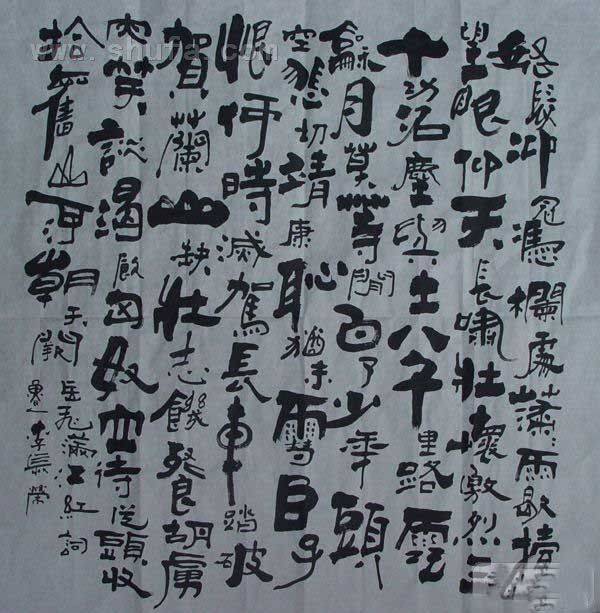 怒髮沖冠憑欄處瀟瀟雨歇擡
望眼仰天長嘯壯懷激烈三
十功名塵與土八千里路雲
龢月莫等閒白了少年頭
空悲切靖康恥猶未雪臣子
恨何時滅駕長車踏破
賀蘭山缺壯志饑餐胡虜
肉笑談渴飲匈奴血待從頭收
拾舊山河朝天闕 岳飛滿江紅詞
李長榮
www.shufa.com